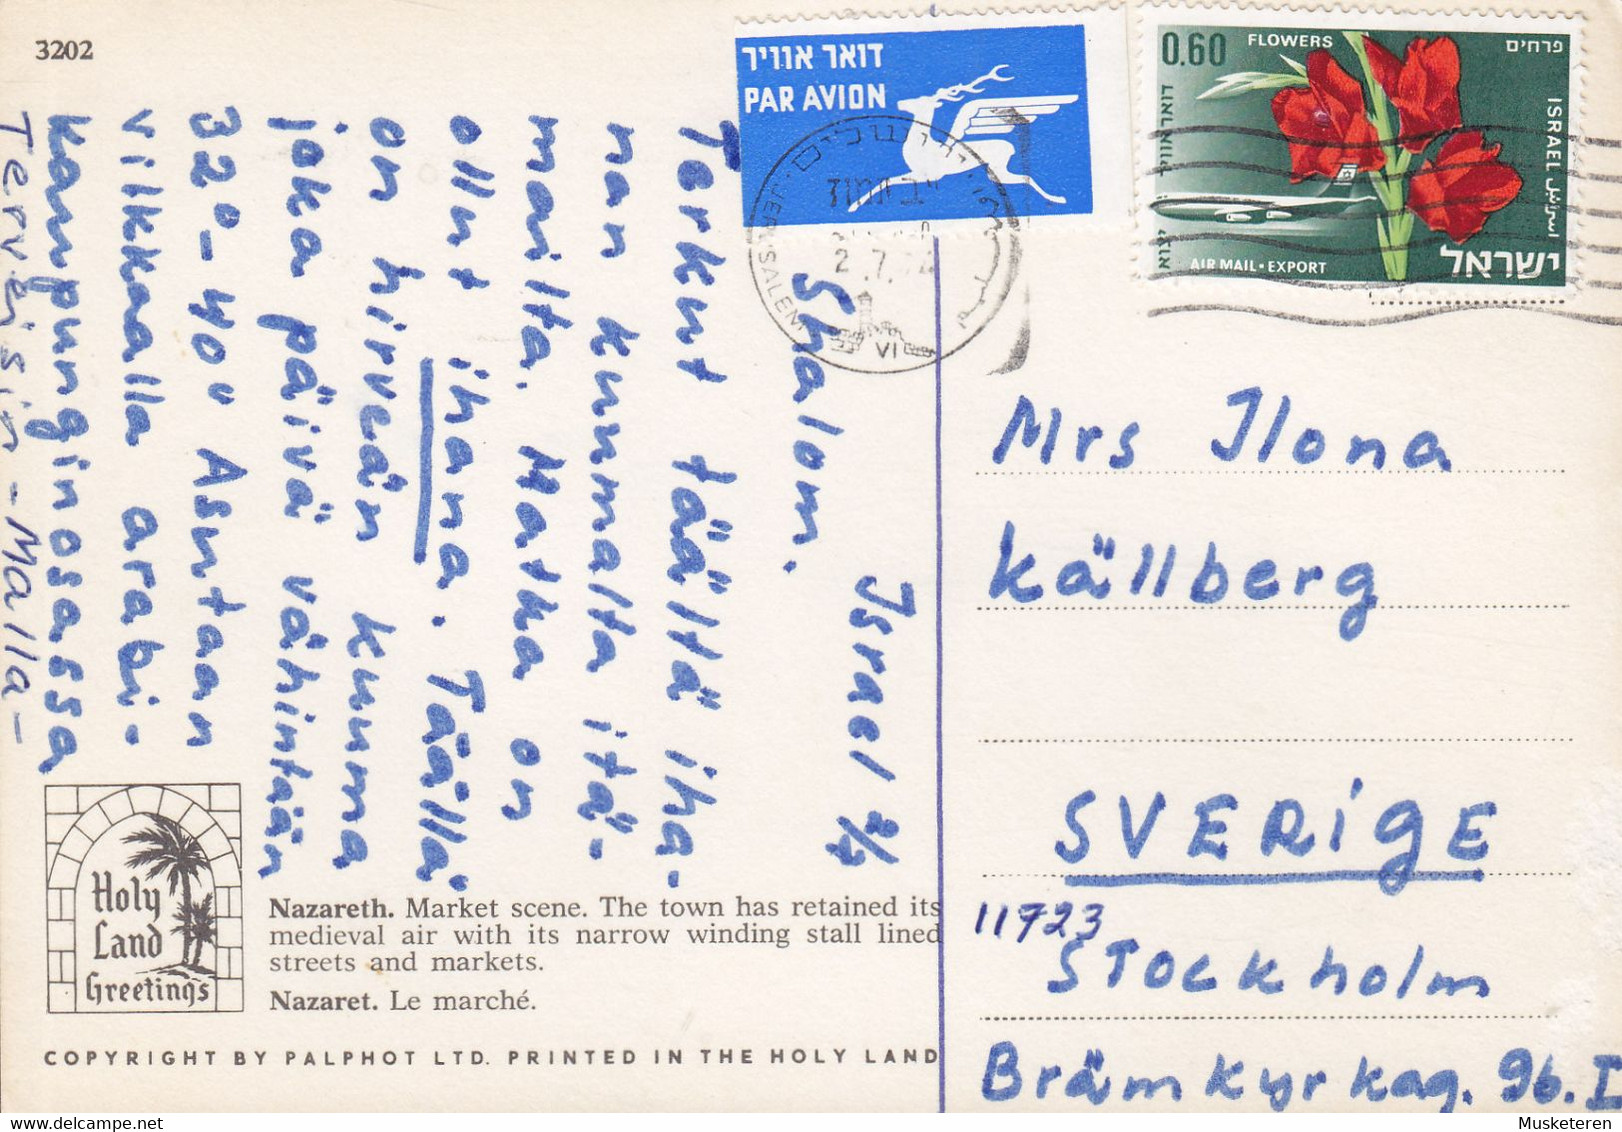 3202
דואר אוויר
PAR AVION
0.60
FLOWERS
פרחים
דואר אוויר
יצוא
ISRAEL اسرائيل
AIR MAIL • EXPORT
ישראל
ירושלים
JERUSALEM
2.7.
VI
Israel 2/7
Shalom.
Terkut täältä iha-
nan kuumalta itä-
mailta. Matka on
ollut ihana. Täällä
on hirveän kuuma
joka päivä vähintään
32°-40° Asutaan
vilkkaalla arabi-
kaupunginosassa
Terveisin - Malla -
Mrs Ilona
Källberg
SVERIGE
11723
STockholm
Brämkyrkag. 96. I
Holy
Land
Greetings
Nazareth. Market scene. The town has retained its
medieval air with its narrow winding stall lined
streets and markets.
Nazaret. Le marché.
COPYRIGHT BY PALPHOT LTD. PRINTED IN THE HOLY LAND
Musketeren